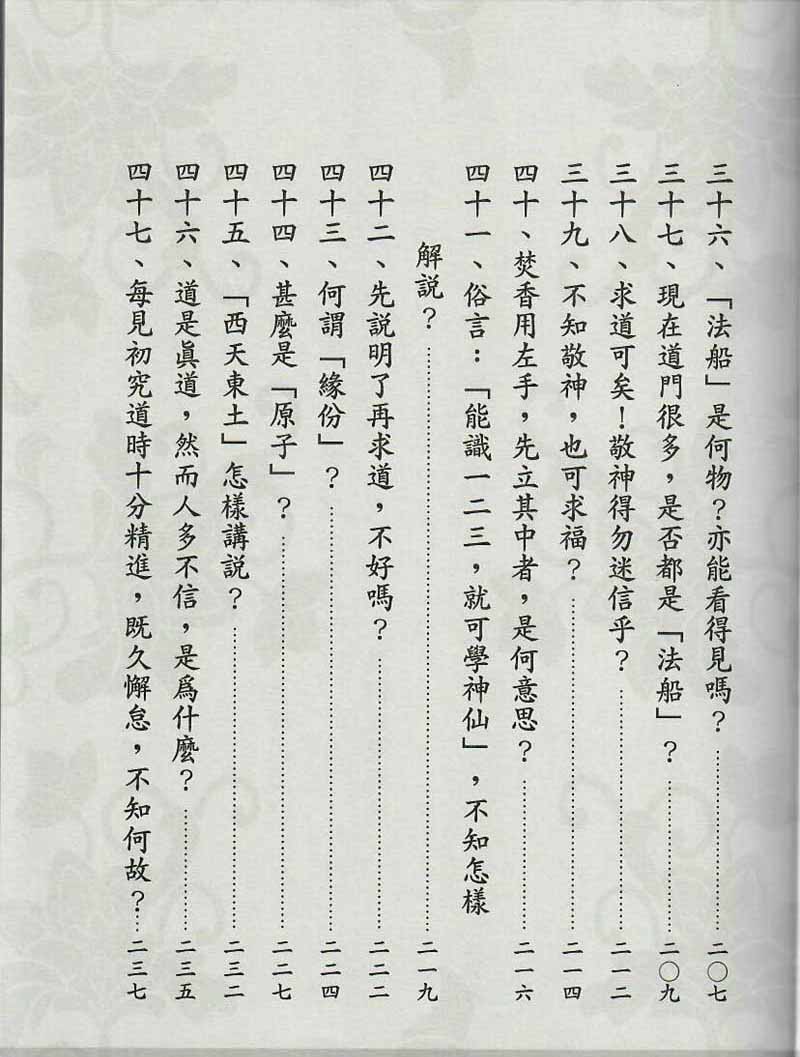 三十六、「法船」是何物？亦能看得見嗎？……二〇七
三十七、現在道門很多，是否都是「法船」？……二〇九
三十八、求道可矣！敬神得勿迷信乎？……二一二
三十九、不知敬神，也可求福？……二一四
四十、焚香用左手，先立其中者，是何意思？……二一六
四十一、俗言：「能識一二三，就可學神仙」，不知怎樣
解説？……二一九
四十二、先説明了再求道，不好嗎？……二二二
四十三、何謂「緣份」？……二二四
四十四、甚麼是「原子」？……二二七
四十五、「西天東土」怎樣講説？……二三二
四十六、道是眞道，然而人多不信，是爲什麼？……二三五
四十七、每見初究道時十分精進，既久懈怠，不知何故？…二三七